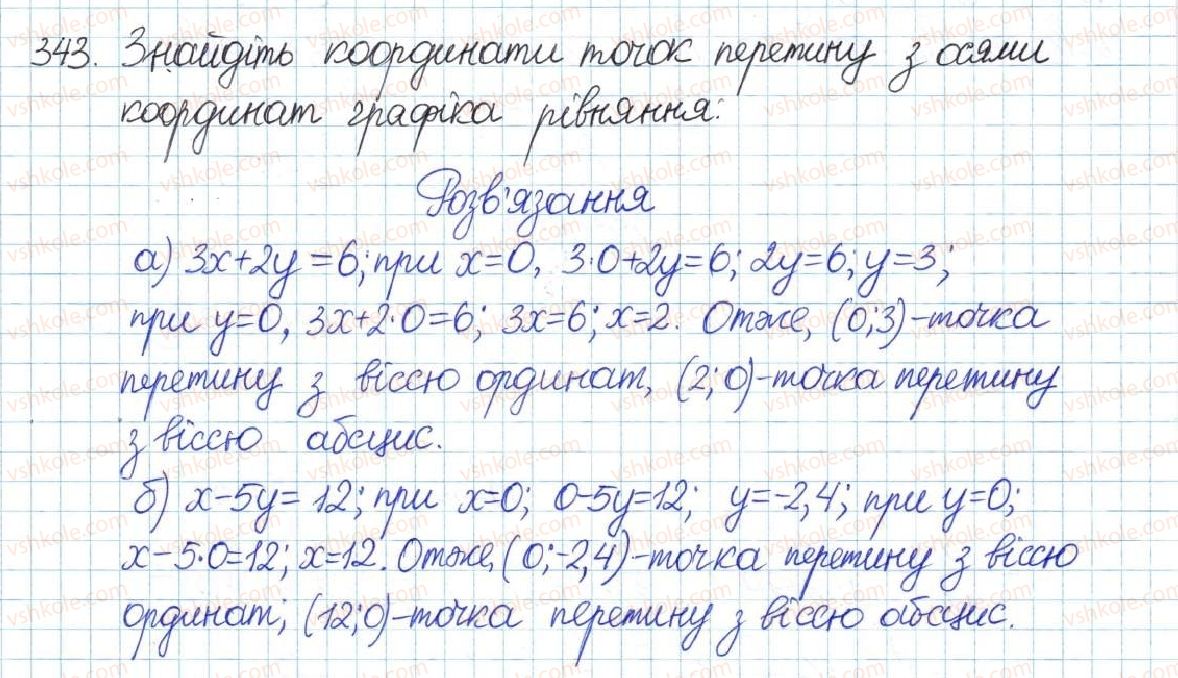 343. Знайдіть координати точок перетину з осями
координат графіка рівняння:
Розв'язання
а) 3x+2y=6; при x=0, 3·0+2y=6; 2y=6; y=3;
при y=0, 3x+2·0=6; 3x=6; x=2. Отже, (0;3)-точка
перетину з віссю ординат, (2;0)-точка перетину
з віссю абсцис.
б) x-5y=12; при x=0; 0-5y=12; y=-2,4; при y=0;
x-5·0=12; x=12. Отже, (0;-2,4)-точка перетину з віссю
ординат; (12;0)-точка перетину з віссю абсцис.